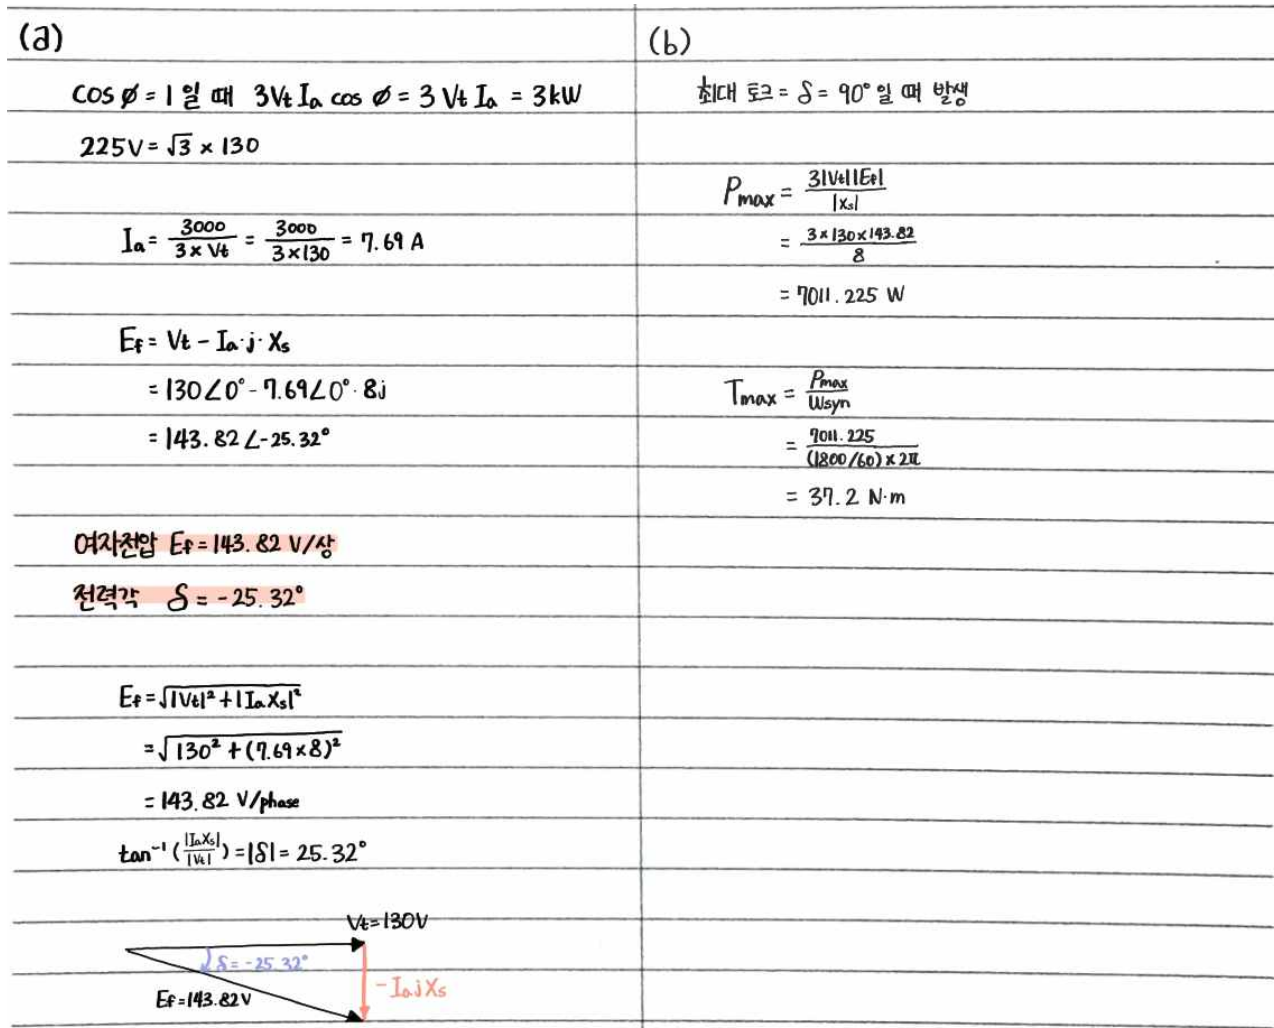 (a)
cos ø = 1 일 때 3Vt Ia cos ø = 3 Vt Ia = 3kW
225V = √3 × 130
Ia = 3000/(3 × Vt) = 3000/(3×130) = 7.69 A
Ef = Vt - Ia·j·Xs
= 130∠0° - 7.69∠0°·8j
= 143.82∠-25.32°
여자전압 Ef = 143.82 V/상
전력각 δ = -25.32°
Ef = √(|Vt|² + |IaXs|²)
= √(130² + (7.69×8)²)
= 143.82 V/phase
tan⁻¹(|IaXs|/|Vt|) = |δ| = 25.32°
Vt=130V
δ=-25.32°
Ef=143.82V
-IajXs
(b)
최대 토크 = δ = 90°일 때 발생
Pmax = 3|Vt||Ef|/|Xs|
= (3×130×143.82)/8
= 7011.225 W
Tmax = Pmax/Wsyn
= 7011.225/((1800/60)×2π)
= 37.2 N·m